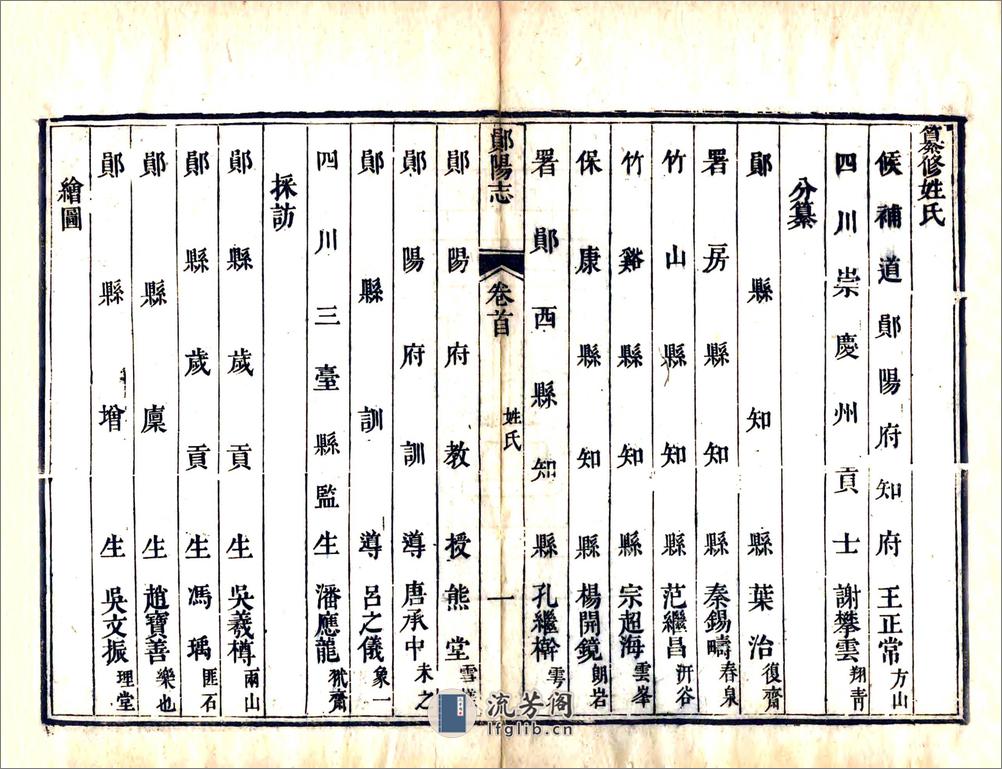 纂修姓氏
候補道鄖陽府知府王正常方山
四川崇慶州貢士謝攀雲翔青
分纂
鄖縣知縣葉治復齋
署房縣知縣秦錫疇春泉
竹山縣知縣范繼昌汧谷
竹谿縣知縣宗超海雲峯
保康縣知縣楊開鏡朗岩
署鄖西縣知縣孔繼檊雩
鄖陽志 卷首 姓氏 一
鄖陽府教授熊堂雪
鄖陽府訓導唐承中未之
鄖縣訓導呂之儀象一
四川三臺縣監生潘應龍齋
採訪
鄖縣歲貢生吳羲樽雨山
鄖縣歲貢生馮瑀匪石
鄖縣廩生趙寶善樂也
鄖縣增生吳文振理堂
繪圖
流芳阁
lfglib.cn